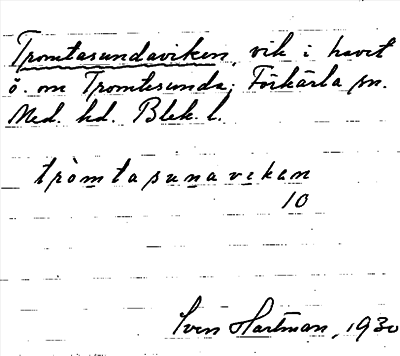 Tromtasundaviken, vik i havet
ö. om Tromtesunda; Förkärla sn.
Med. hd. Blek. l.
tròmtasunavekan
10
Sven Hartman, 1930